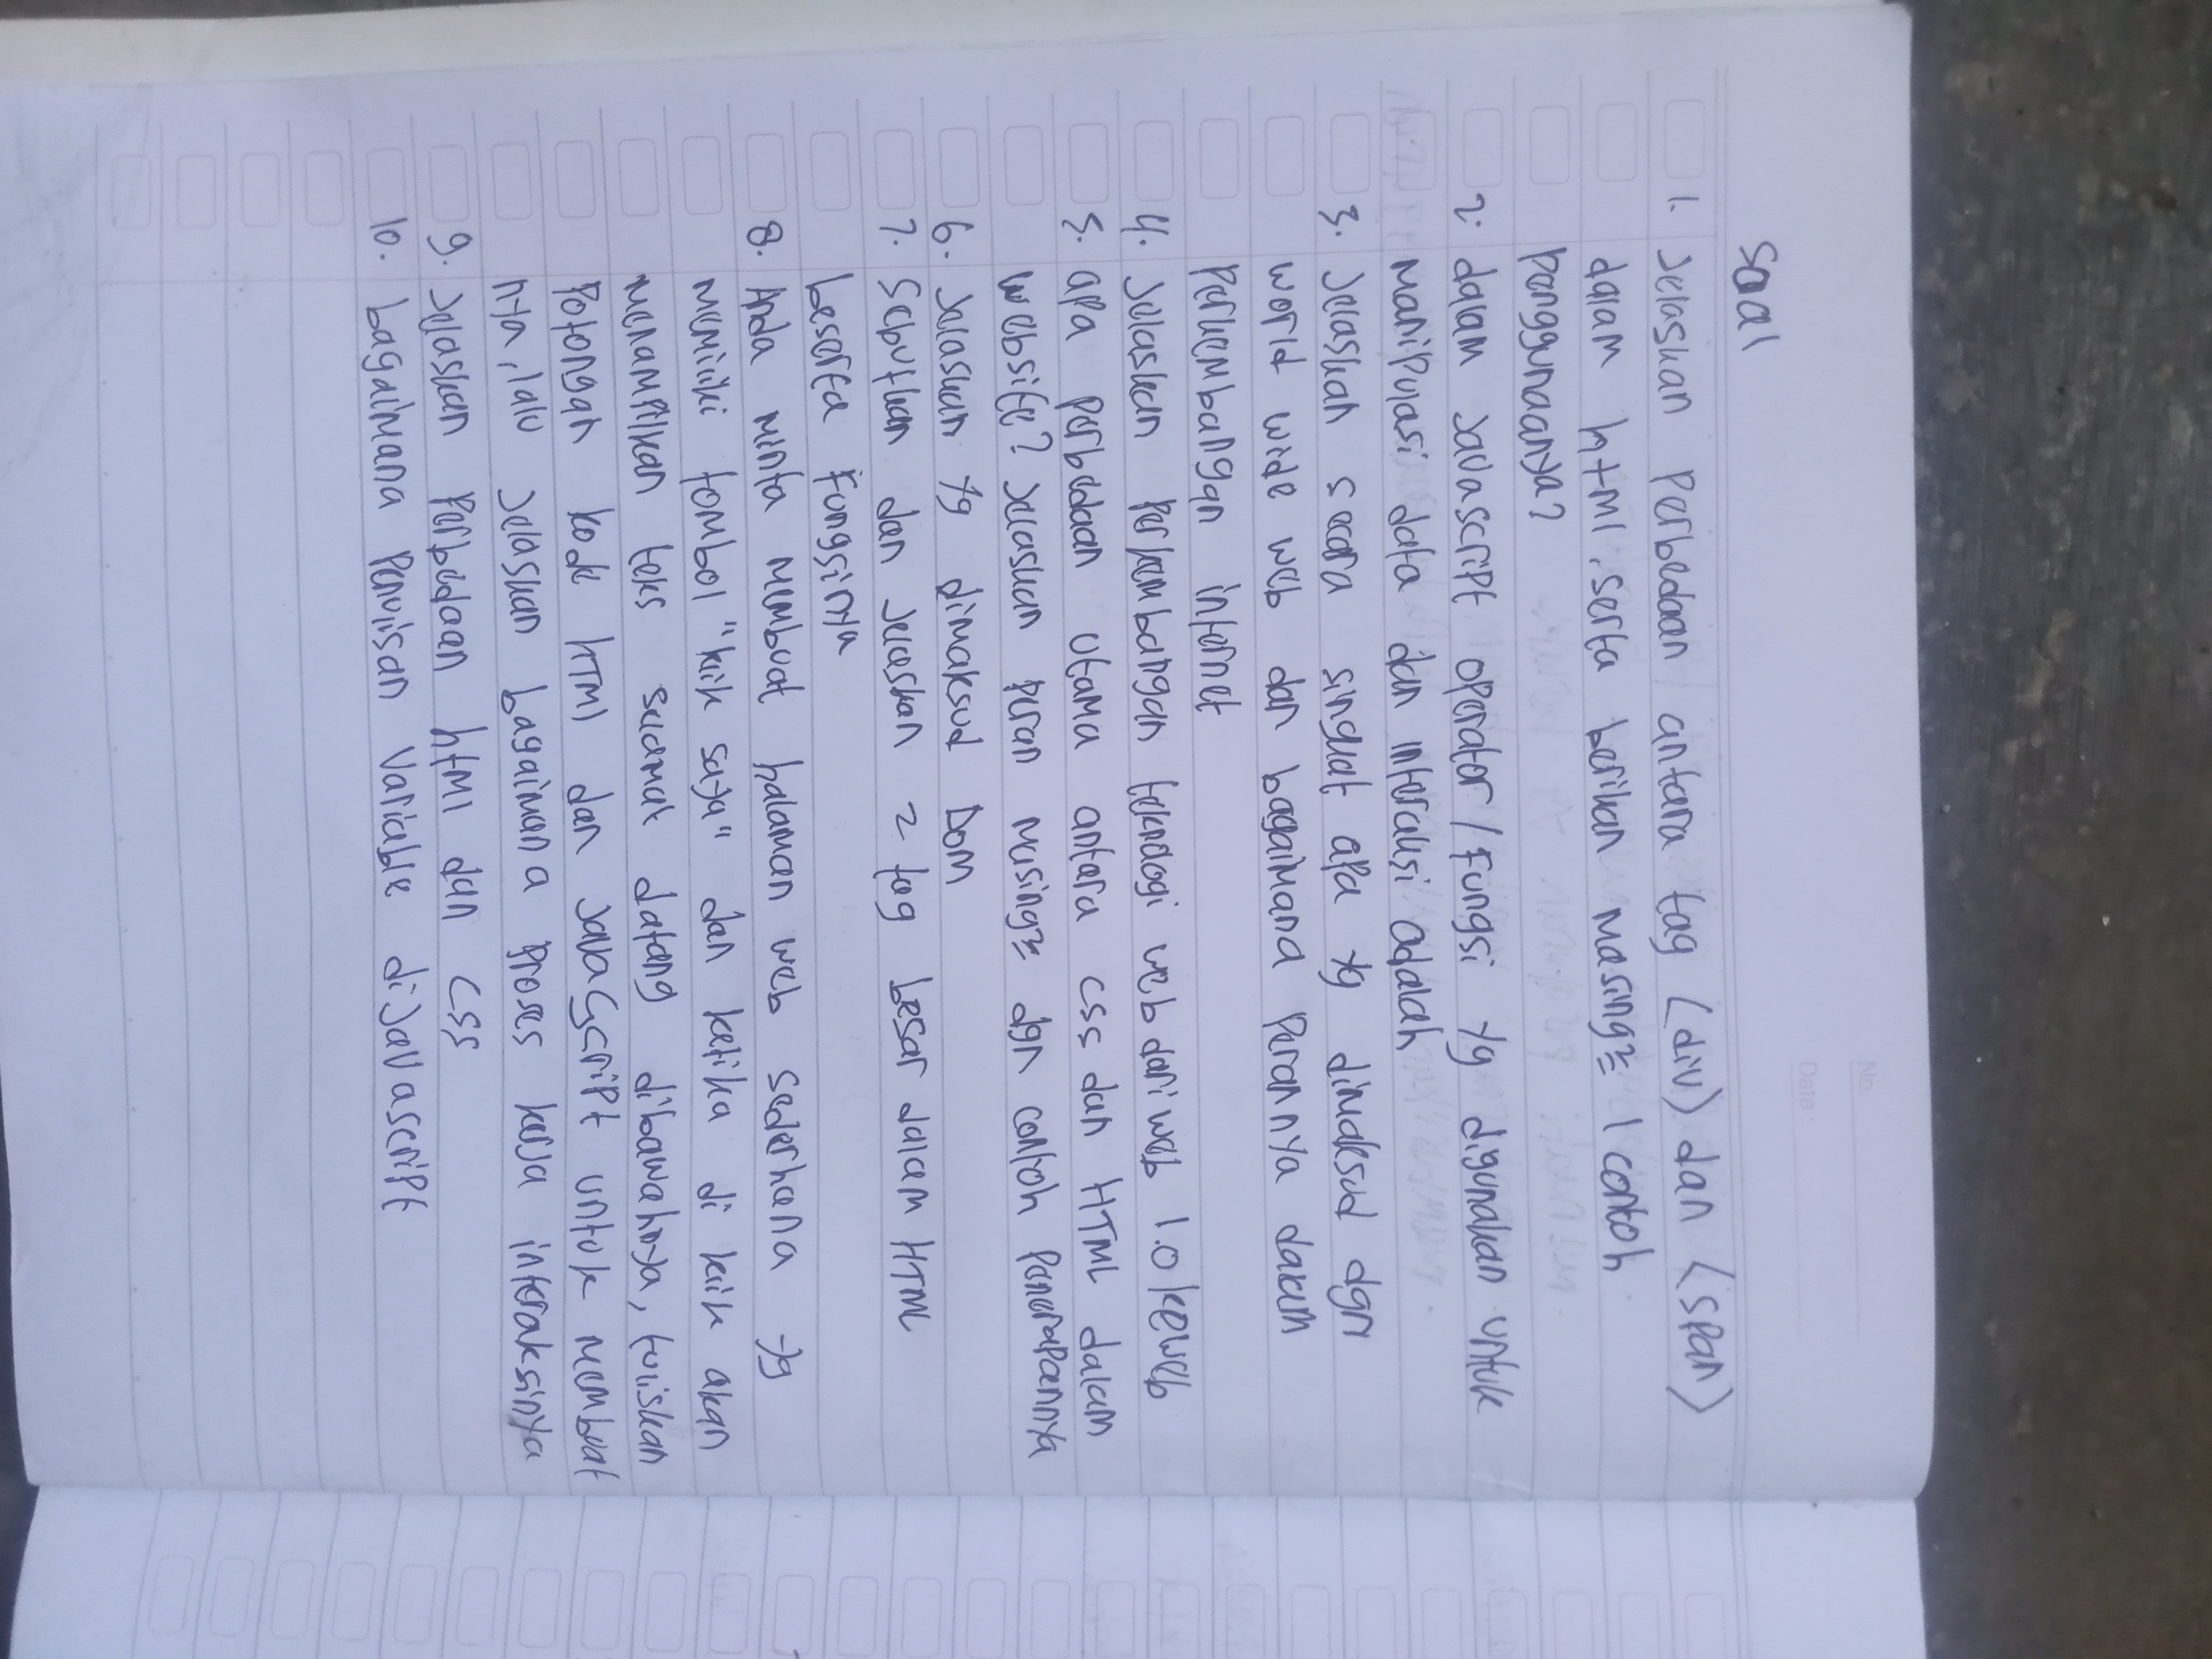 No.
Date :
Soal
1. Jelaskan Perbedaan antara tag (div) dan <span>
dalam html, serta berikan masing² 1 contoh
Penggunaanya?
2. dalam Javascript operator / Fungsi yg digunakan untuk
manipulasi data dan interaksi adalah
3. Jelaskan secara singkat apa yg dimaksud dgn
world wide web dan bagaimana Perannya dalam
Perkembangan internet
4. Jelaskan Perkembangan teknologi web dari web 1.0 keweb
5. apa Perbedaan utama antara css dan HTML dalam
website? Jelaskan peran masing² dgn contoh Penerapannya
6. Jelaskan yg dimaksud Dom
7. Sebutkan dan Jelaskan 2 tag besar dalam HTML
beserta Fungsinya
8. Anda minta membuat halaman web sederhana yg
memiliki tombol "klik saya" dan ketika di klik akan
menampilkan teks selamat datang dibawahnya, tuliskan
Potongan kode HTMl dan JavaScript untuk membuat
nya, lalu Jelaskan bagaimana Proses kerja interaksinya
9. Jelaskan Perbedaan html dan css
10. bagaimana Penulisan Variable di Javascript